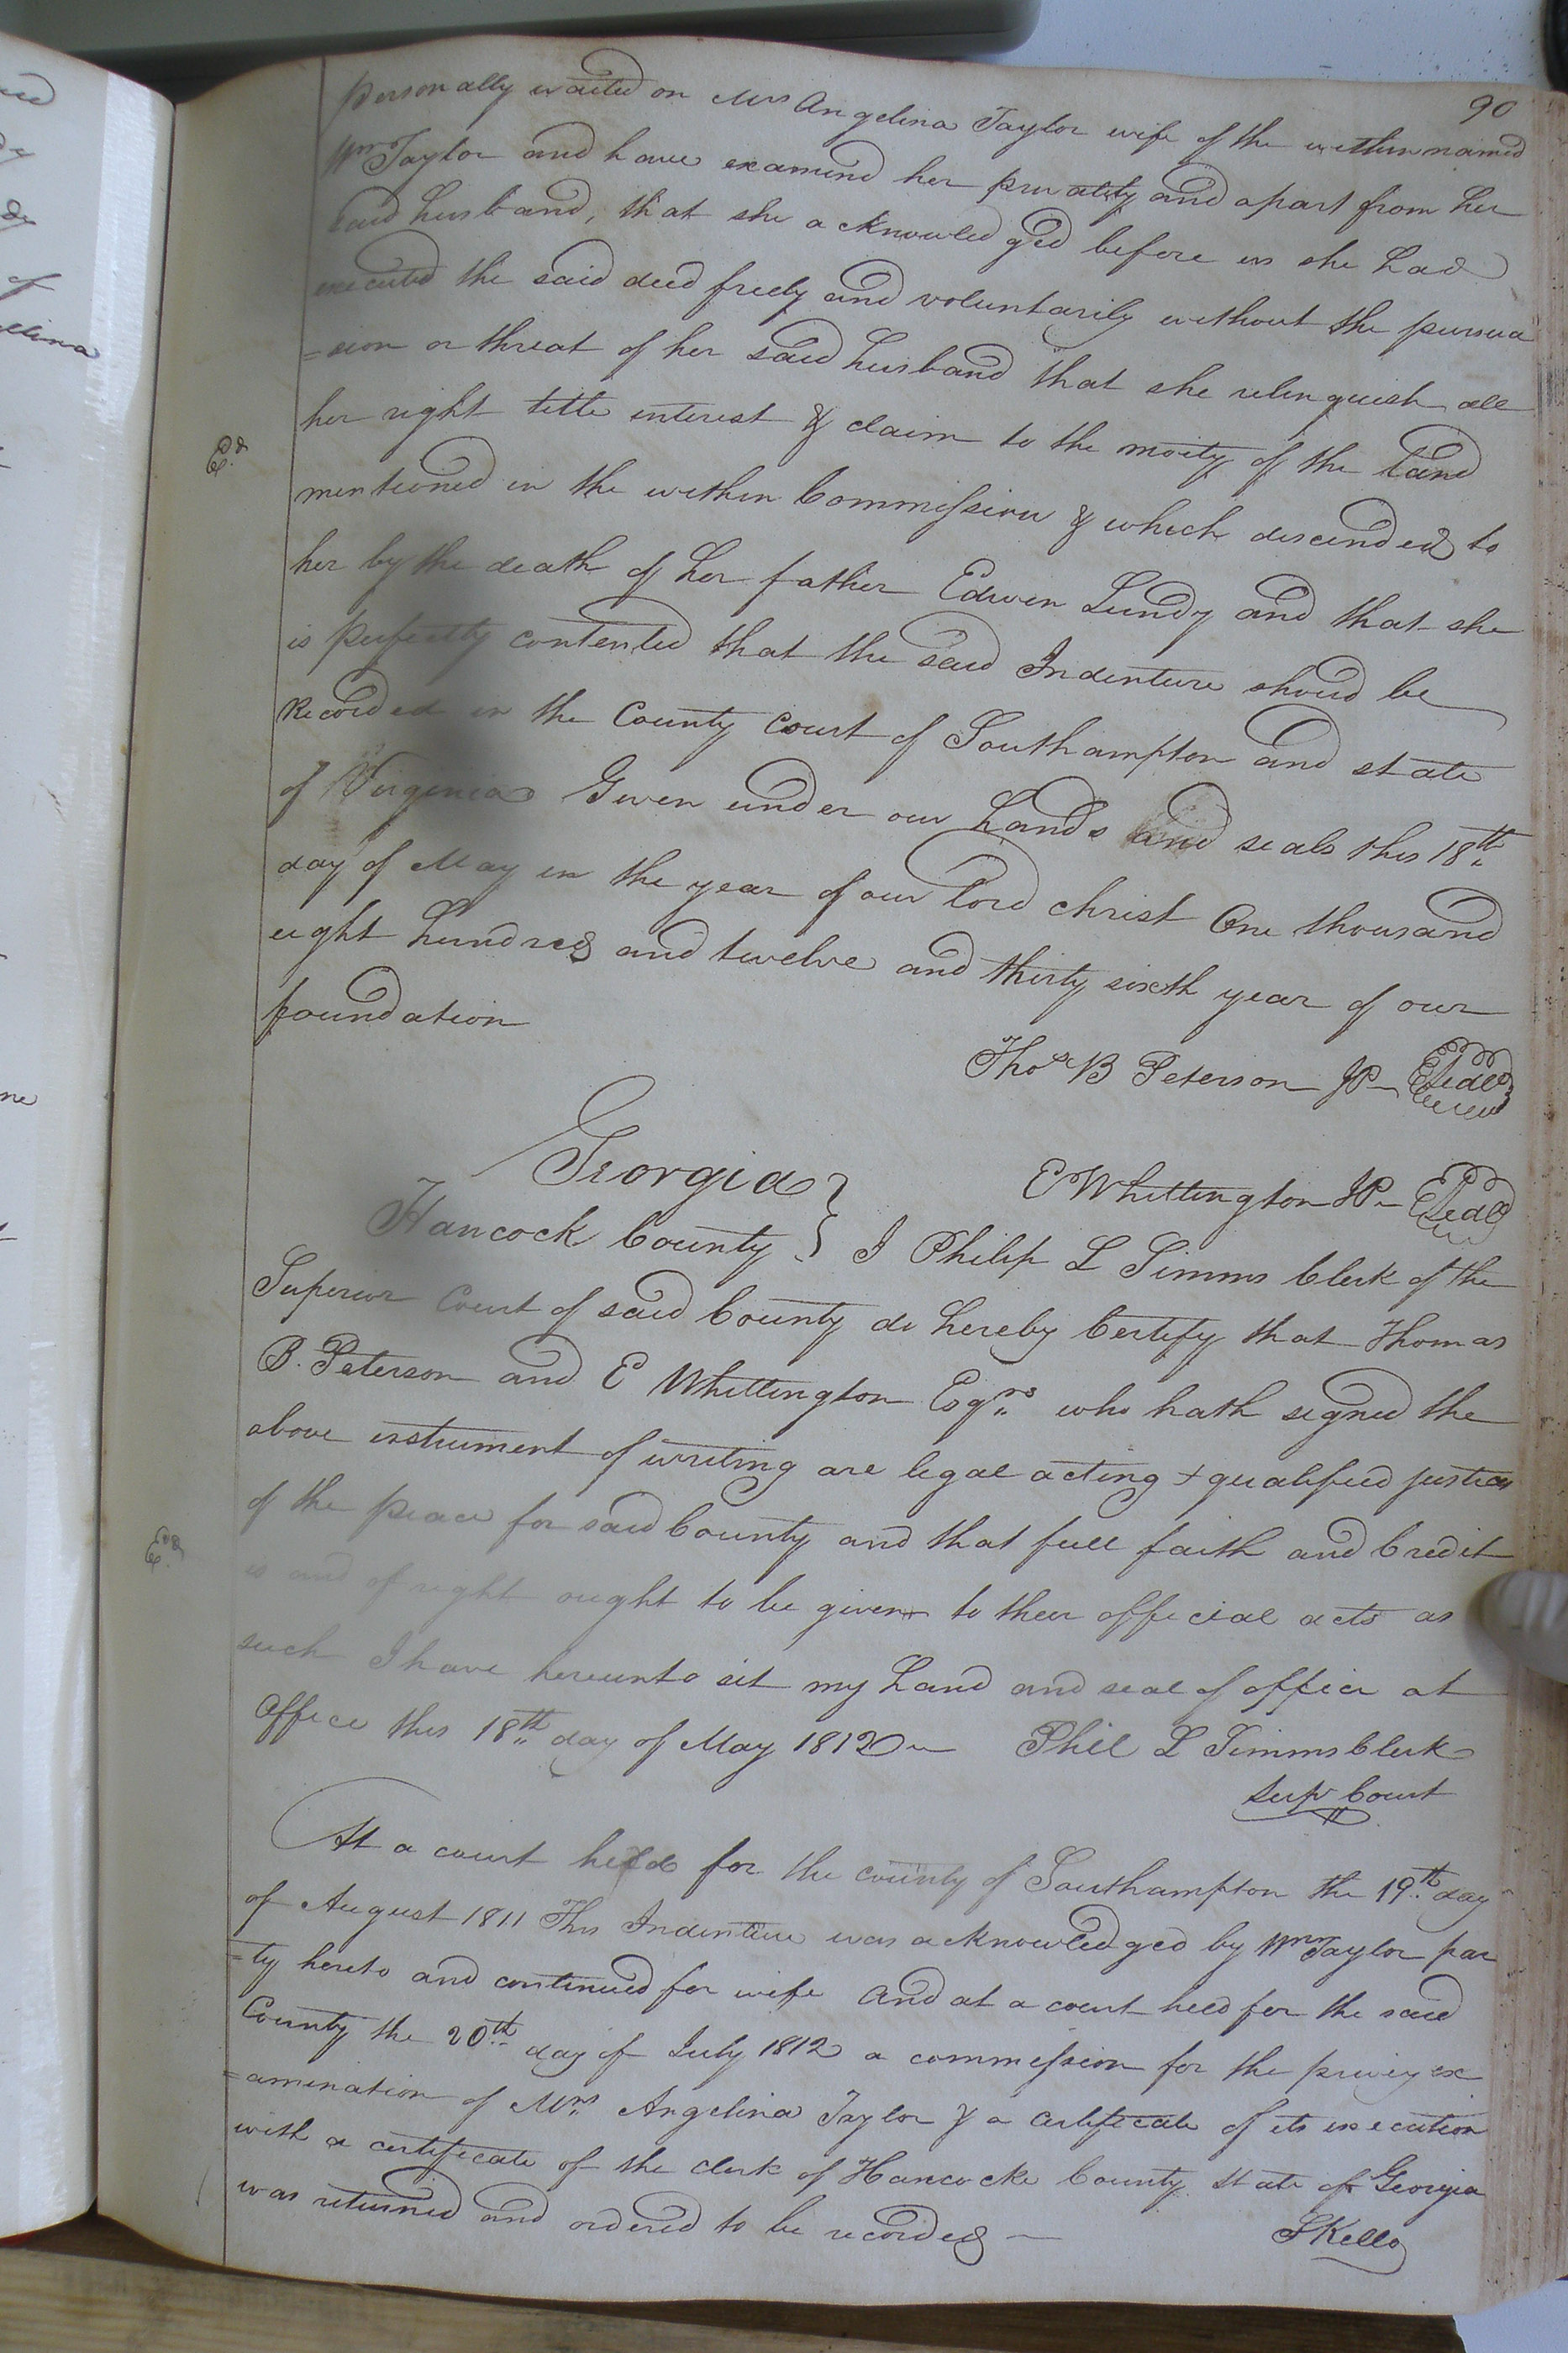 90
personally waited on Mrs Angelina Taylor wife of the within named
Wm Taylor and have examined her privately and apart from her
said husband, that she acknowledged before us she had
executed the said deed freely and voluntarily without the persua
=sion or threat of her said husband that she relinquish all
her right title interest & claim to the moity of the land
mentioned in the within Commission & which descended to
her by the death of her father Edwin Lundy and that she
is perfectly contented that the said Indenture shoud be
Recorded in the County Court of Southampton and state
of Virginia Given under our hands and seals this 18th
day of May in the year of our lord christ One thousand
eight hundred and twelve and thirty sixth year of our
foundation
Thos B Peterson JP Seal
Georgia
E Whittington JP Seal
Hancock County } I Philip L Simms Clerk of the
Superior Court of said County do hereby Certify that Thomas
B. Peterson and E Whittington Esqrs who hath signed the
above instrument of writing are legal acting + qualified justices
of the peace for said County and that full faith and Credit
is and of right ought to be given to their official acts as
such I have hereunto set my hand and seal of office at
office this 18th day of May 1812 Phil L Simms Clerk
Supr Court
At a court held for the county of Southampton the 19th day
of August 1811 This Indenture was acknowledged by Wm Taylor par
=ty hereto and continued for wife And at a court held for the said
County the 20th day of July 1812 a commission for the privy ex
=amination of Mrs Angelina Taylor & a certificate of its execution
with a certificate of the clerk of Hancocke County state of Georgia
was returned and ordered to be recorded
SKello